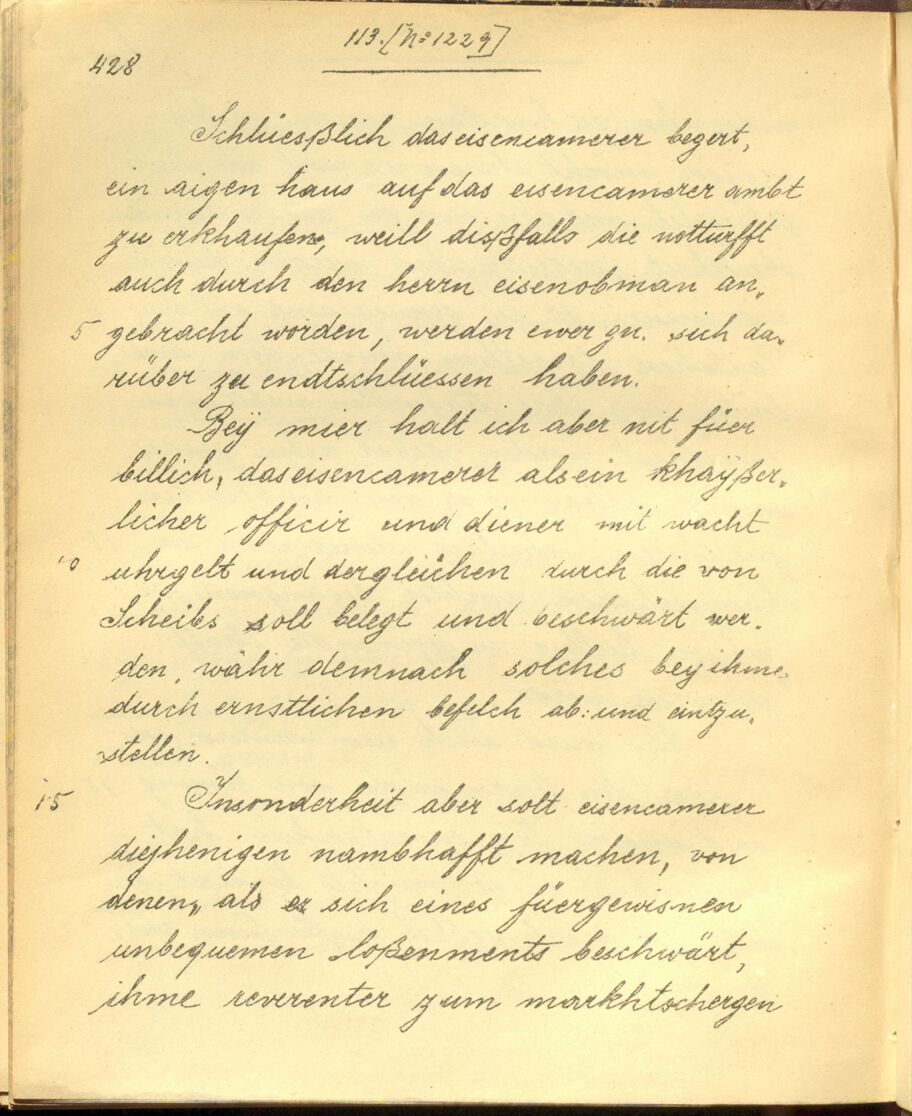 113. [No 1229]
428
Schlüesßlich das eisencamerer begert,
ein aigen haus auf das eisencamerer ambt
zu erkhaufen, weill disßfalls die notturfft
auch durch den herrn eisenobman an„
5 gebracht worden, werden ewer gn. sich da„
rüber zu endtschlüessen haben.
Beÿ mier halt ich aber nit füer
billich, das eisencamerer als ein khaÿßer„
licher officir und diener mit wacht
10 uhrgelt und dergleichen durch die von
Scheibs soll belegt und beschwärt wer„
den, währ demnach solches bey ihme
durch ernstlichen befelch ab: und eintzu„
stellen.
15 Insonderheit aber solt eisencamerer
diejhenigen nambhafft machen, von
denen, als er sich eines füergewisnen
unbequemen loßenments beschwärt,
ihme reverenter zum markhtschergen